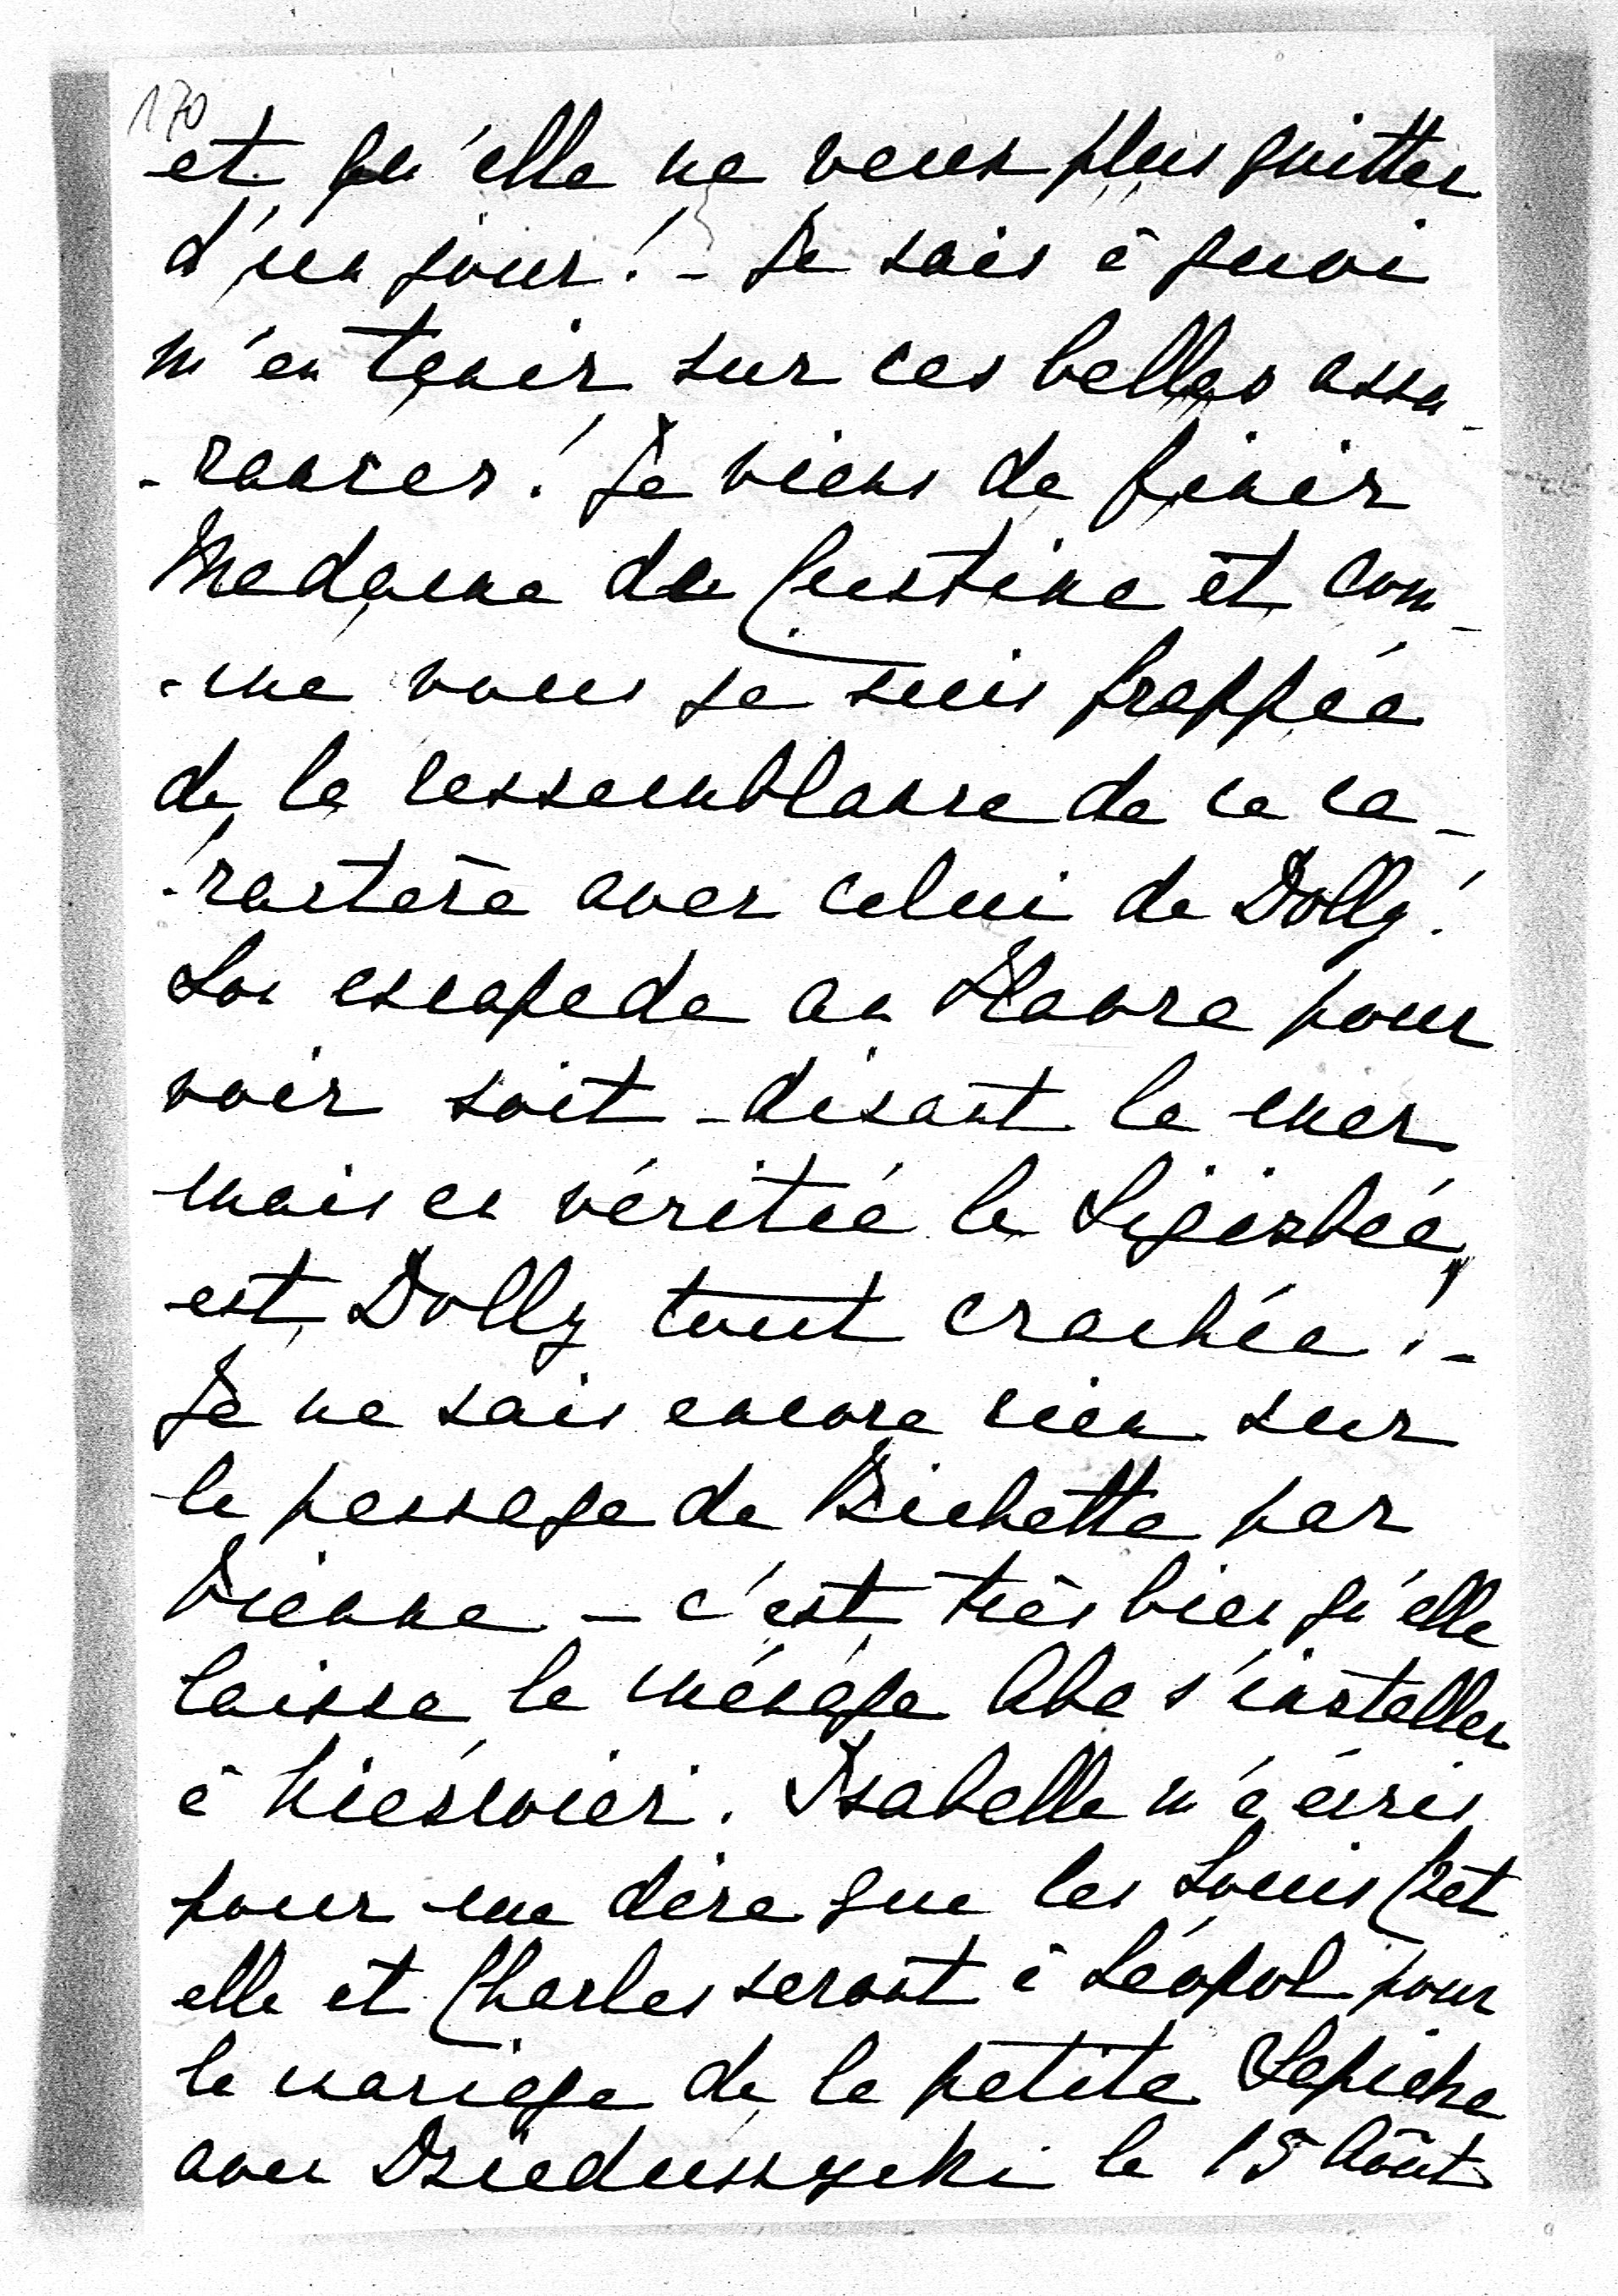 170
et qu'elle ne veux plus quitter
d'un jour! - Je sais à quoi
m'en tenir sur ces belles assu-
-rances! Je viens de finir
Madame de Custine et com-
-me vous je suis frappée
de la ressemblance de ce ca-
-ractère avec celui de Dolly!
Son escapade au Havre pour
voir soit-disant la mer
mais en véritée le Sigisbée,
est Dolly tout crachée! -
Je ne sais encore rien sur
le passage de Bichette par
Vienne - c'est très bien qu'elle
laisse le ménage Abe s'installer
à Nieśwież. Isabelle m'a écris
pour me dire que les Louis Cz et
elle et Charles seront à Léopol pour
le mariage de la petite Sapieha
avec Dzieduszycki le 15 Août